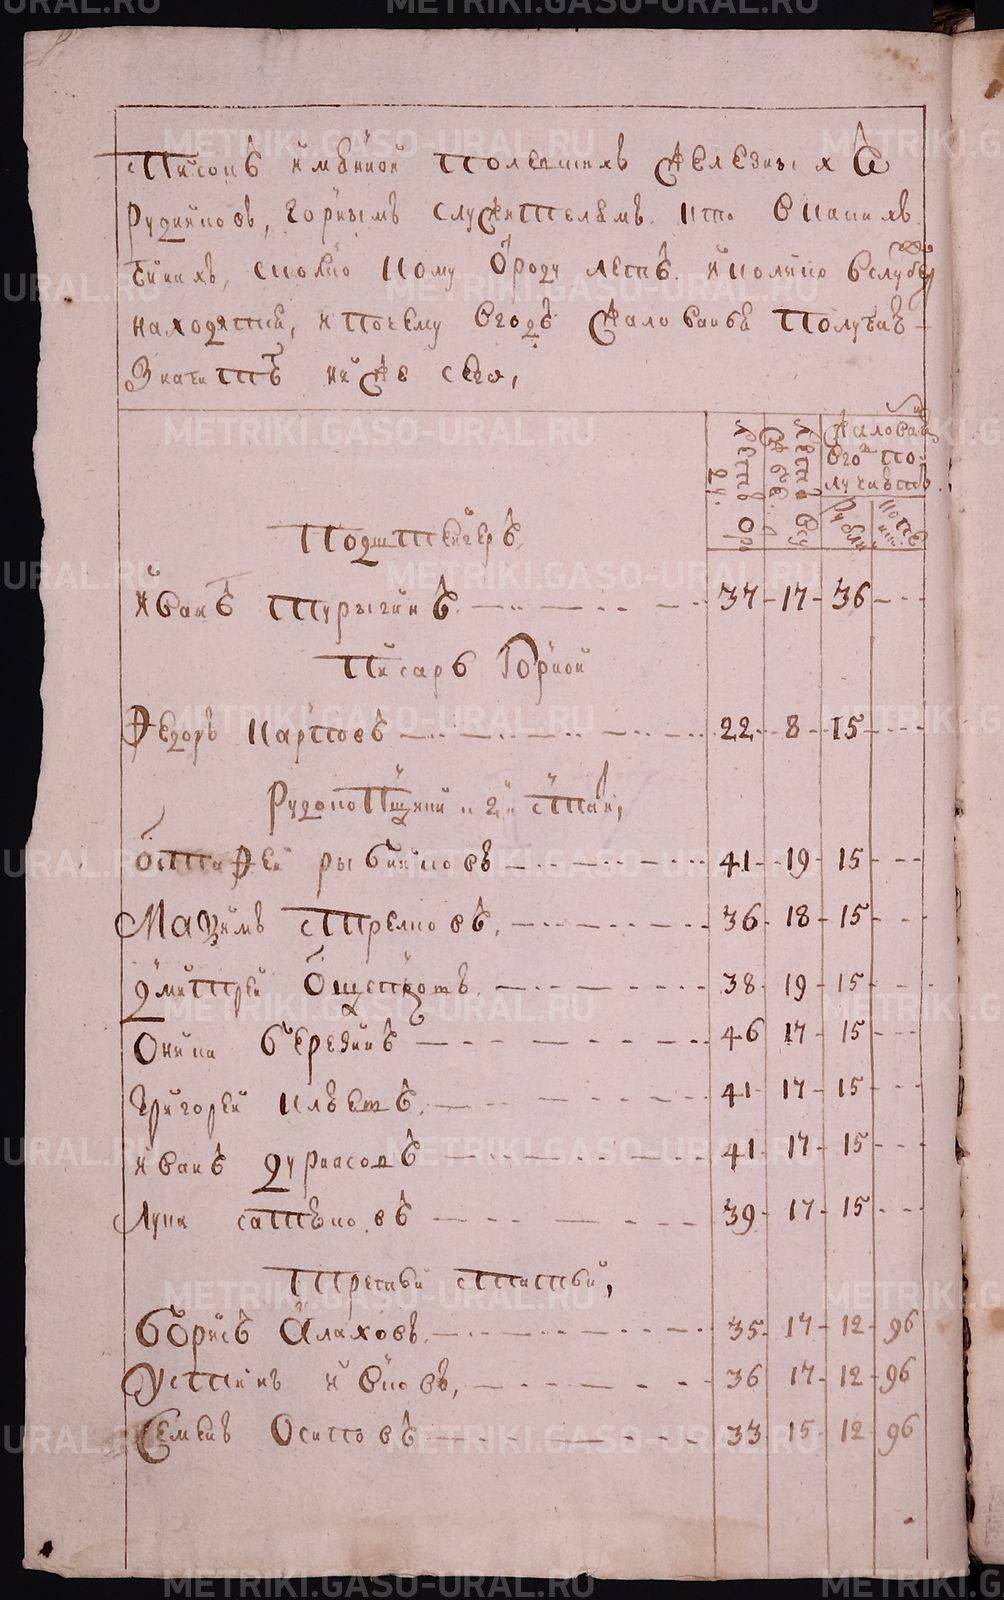 Списокъ имянной Колывш железныхъ
рудниковъ, горнымъ служителямъ. кто в какихъ
чинахъ, сколко кому отроду летъ. и колико вслужбе
находятца, и почему вгодъ жалованья получаетъ
значитъ ниже сего,
летъ отроду
вслужбе летъ
жалованья
вгодъ по-
лучаетъ
рубли
копе.
Подштейгеръ
Иванъ Турыгинъ. 37 17 36
Писарь Горной
Федоръ Карповъ 22 8 15
Рудокопщики 2й статьи,
Остафей рыбниковъ 41 19 15
Мазимъ стрелковъ, 36 18 15
Дмитрей 38 19 15
Оника бередниъ 46 17 15
Григорей 41 17 15
Иванъ Дурнасовъ 41 17 15
Лука сатъковъ 39 17 15
Третьей статьи,
Борисъ Алаховъ. 35 17 12 96
Устинъ ивковъ, 36 17 12 96
Семенъ Осиповъ 33 15 12 96
METRIKI.GASO-URAL.RU